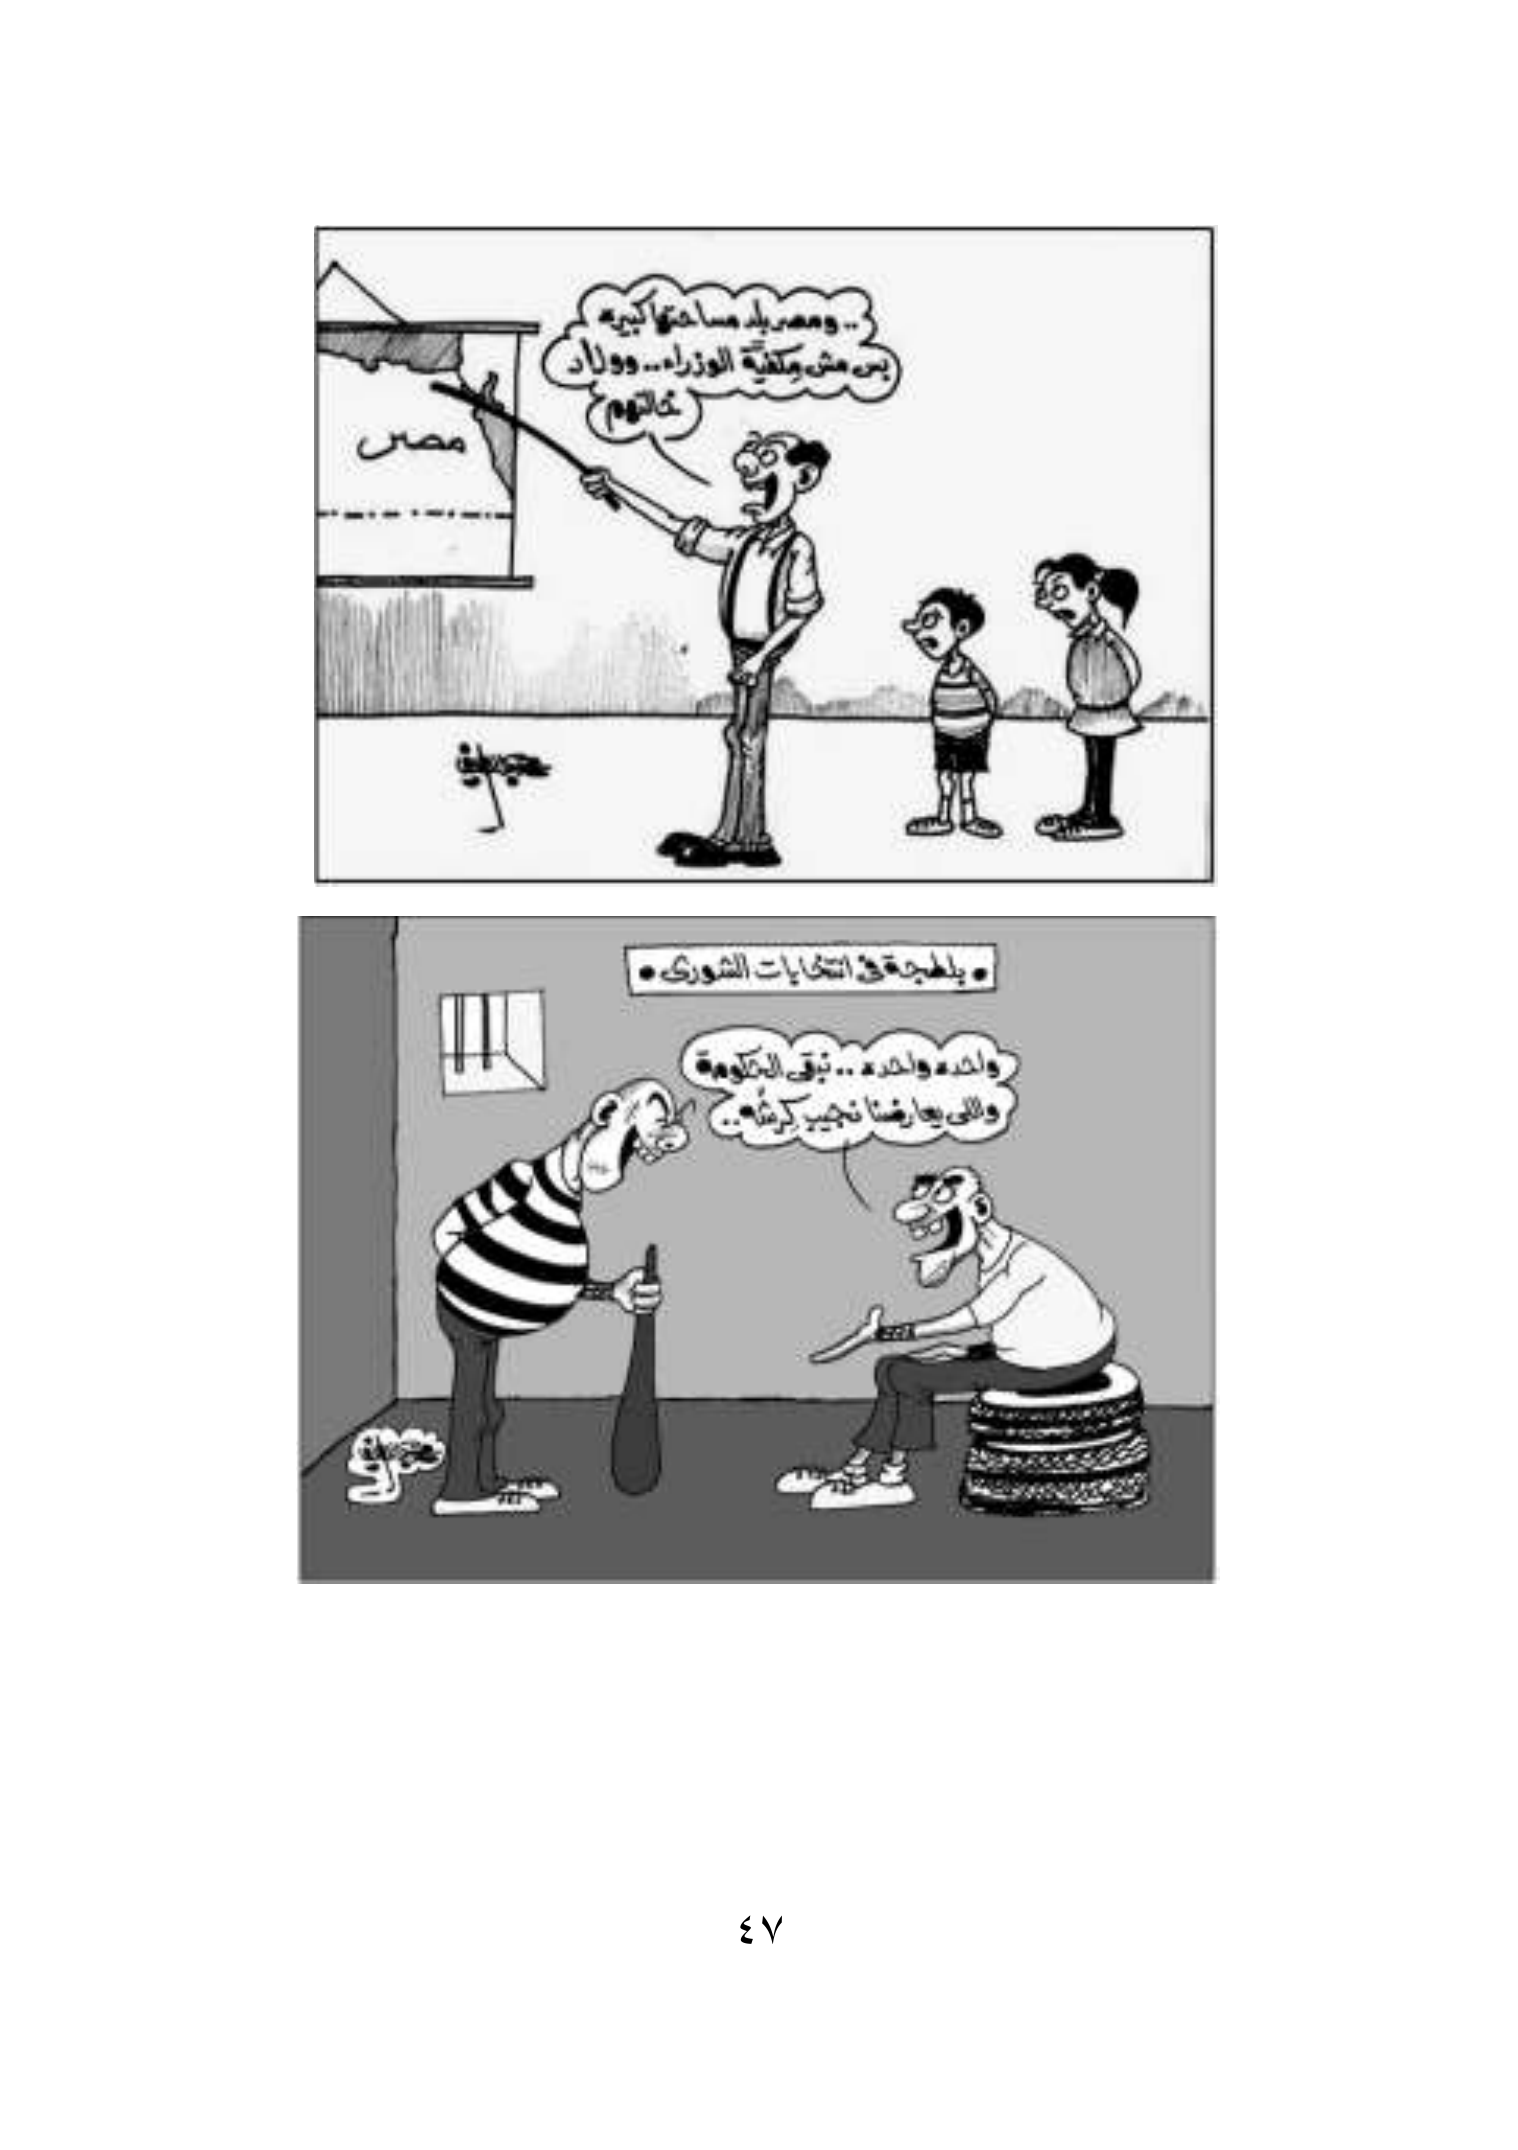 .. ومصر بلد مساحتها كبيره
بس مش مِكفيَّة الوزراء.. وولاد
خالتهم
مصر
• بلطجة فى انتخابات الشورى •
واحده واحده .. نبقى الحكومة
واللى يعارضنا نجيب كِرشُه..
٤٧